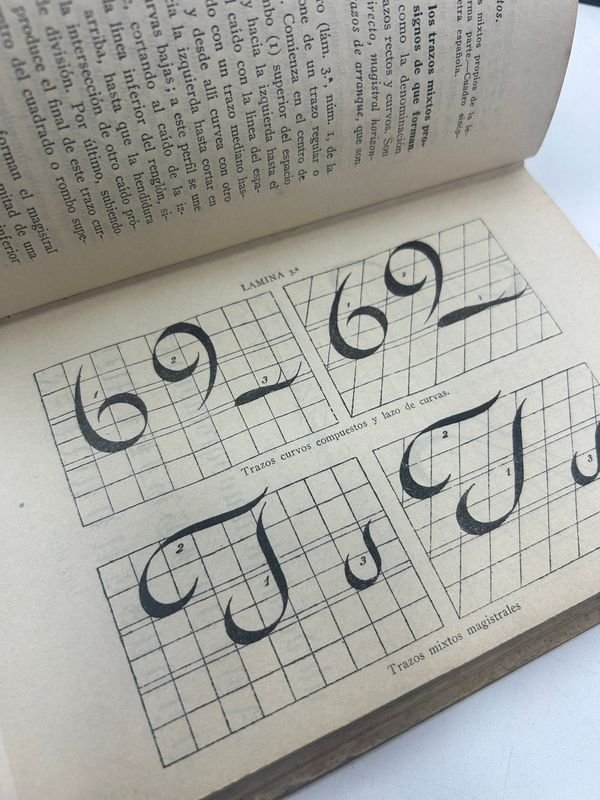 tos.
s mixtos propios de la le-
rma parte.—Cuadro sinóp-
etra española.
los trazos mixtos pro-
signos de que forman
como la denominación
azos rectos y curvos. Son
irecto, magistral horizon-
razos de arranque, que son
ro (lám. 3.ª, núm. 1, de la
one de un trazo regular o
. Comienza en el centro de
mbo (1) superior del espacio
y hacia la izquierda hasta el
l caído con la línea del espa-
do con un trazo mediano has-
y desde allí curvea con otro
ia la izquierda hasta cortar en
urvas bajas; a este perfil se une
, cortando al caído de la iz-
la línea inferior del renglón, si-
arriba, hasta que la hendidura
la intersección de otro caído pró-
de división. Por último, subiendo
produce el final de este trazo cur-
tro del cuadrado o rombo supe-
forman el magistral
mitad de una
inferior
LAMINA 3.ª
1 2 3
1 2 1
Trazos curvos compuestos y lazo de curvas.
2 1 3
2 1 3
Trazos mixtos magistrales